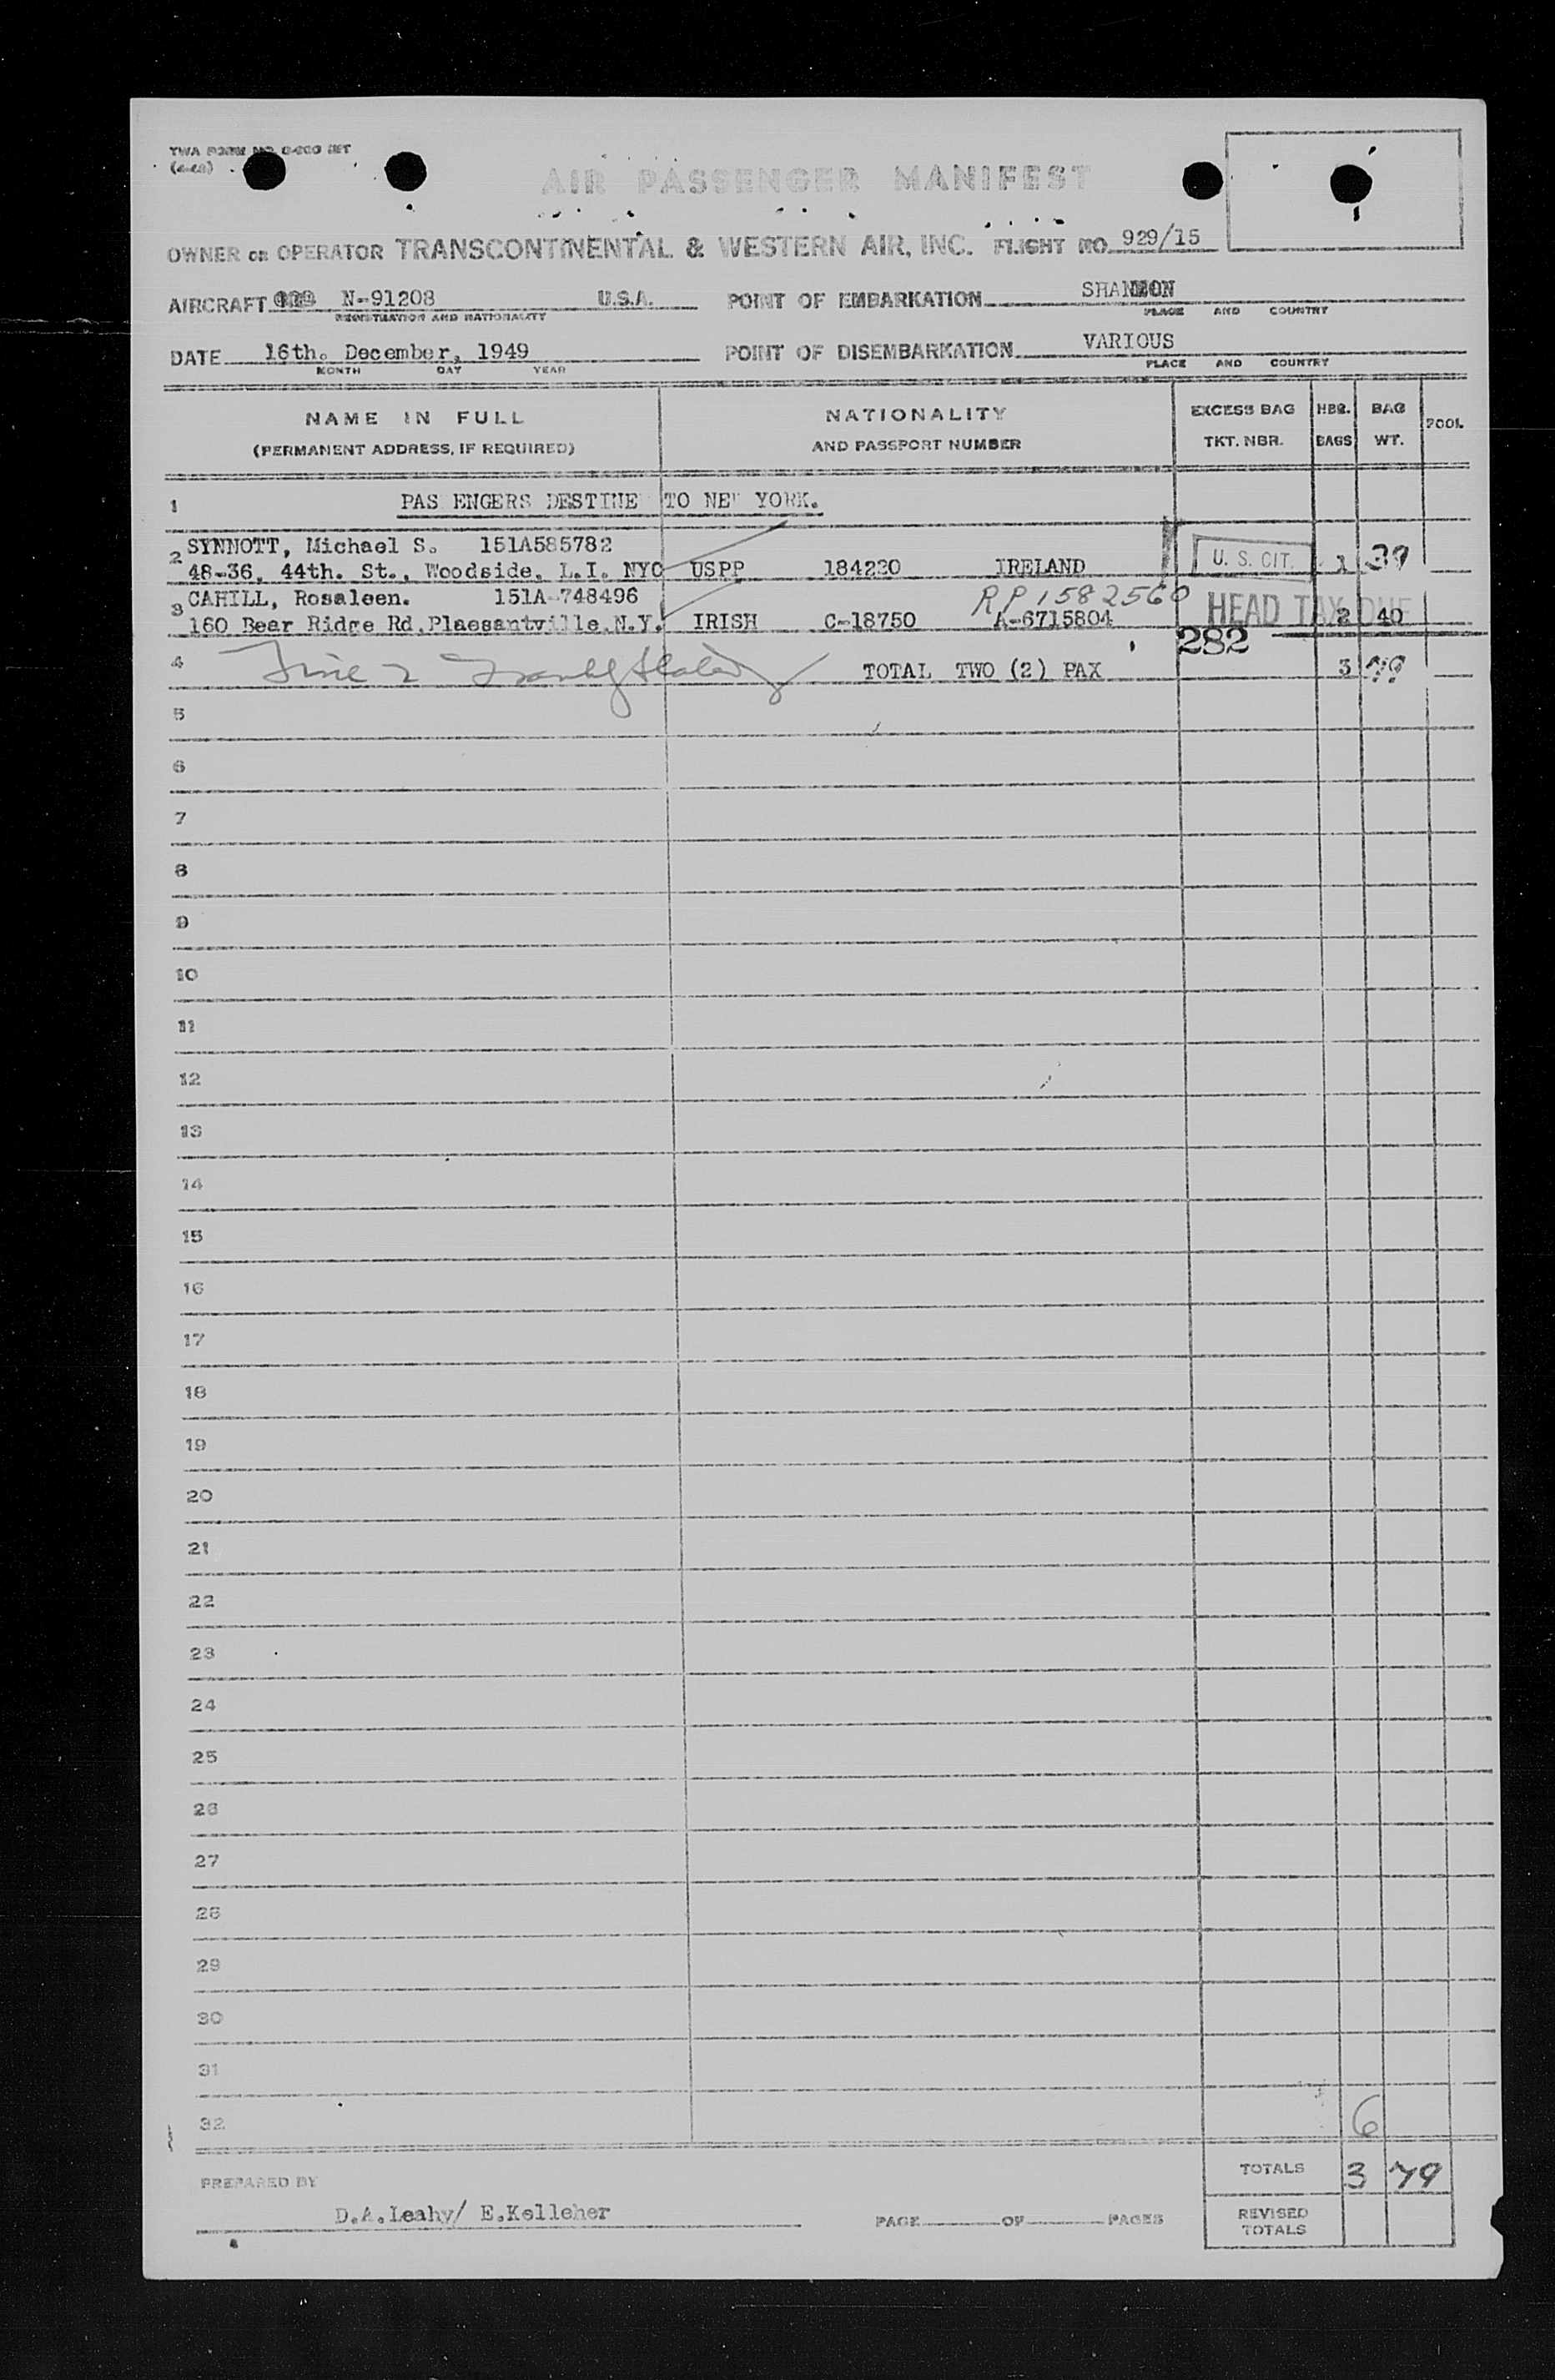 TWA FORM NO.
AIR PASSENGER MANIFEST
OWNER OR OPERATOR TRANSCONTINENTAL & WESTERN AIR, INC. FLIGHT NO. 929/15
AIRCRAFT N-91208 U.S.A. POINT OF EMBARKATION SHANNON
REGISTRATION AND NATIONALITY PLACE AND COUNTRY
DATE 16th. December, 1949 POINT OF DISEMBARKATION VARIOUS
MONTH DAY YEAR PLACE AND COUNTRY
NAME IN FULL NATIONALITY EXCESS BAG NBR. BAG POOL
(PERMANENT ADDRESS, IF REQUIRED) AND PASSPORT NUMBER TKT. NBR. BAGS WT.
1 PAS ENGERS DESTINE TO NEW YORK.
2 SYNNOTT, Michael S. 151A585782
48-36, 44th. St., Woodside, L.I. NYC USPP 184220 IRELAND U. S. CIT. 1 39
3 CAHILL, Rosaleen. 151A-748496 RP 1582560
160 Bear Ridge Rd, Plaesantville, N.Y. IRISH C-18750 A-6715804 HEAD TAX DUE 2 40
282
4 TOTAL TWO (2) PAX 3 79
5
6
7
8
9
10
11
12
13
14
15
16
17
18
19
20
21
22
23
24
25
26
27
28
29
30
31
32 6
PREPARED BY TOTALS 3 79
D.A.Leahy/ E.Kelleher PAGE OF PAGES REVISED
TOTALS